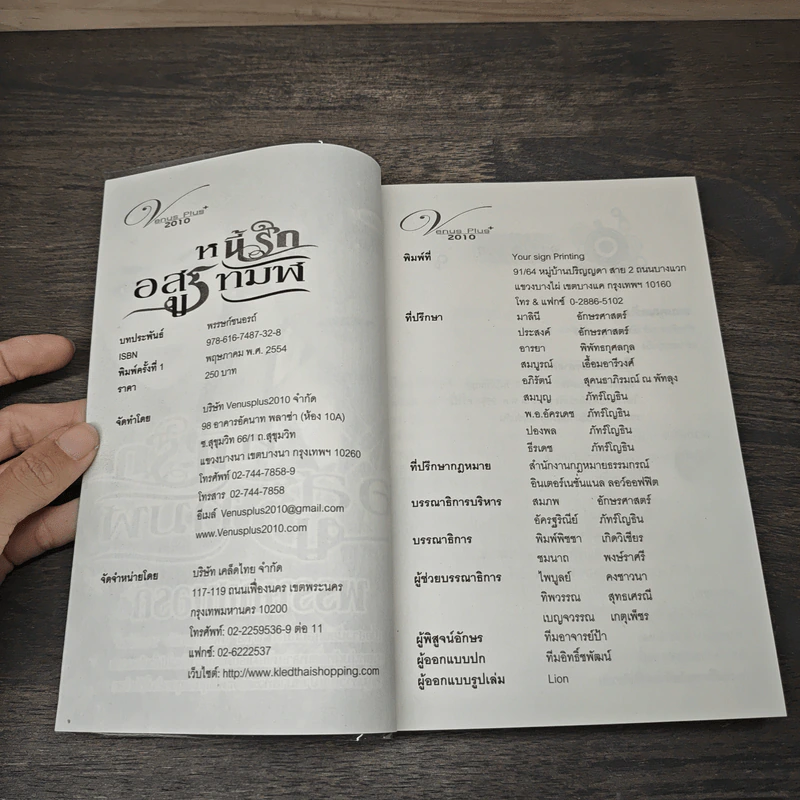 Venus Plus+
2010
หนี้รัก
อสูรทมิฬ
บทประพันธ์ พรรษก์ชนอรณ์
ISBN 978-616-7487-32-8
พิมพ์ครั้งที่ 1 พฤษภาคม พ.ศ. 2554
ราคา 250 บาท
จัดทำโดย บริษัท Venusplus2010 จำกัด
98 อาคารอัคนาท พลาซ่า (ห้อง 10A)
ซ.สุขุมวิท 66/1 ถ.สุขุมวิท
แขวงบางนา เขตบางนา กรุงเทพฯ 10260
โทรศัพท์ 02-744-7858-9
โทรสาร 02-744-7858
อีเมล์ Venusplus2010@gmail.com
www.Venusplus2010.com
จัดจำหน่ายโดย บริษัท เคล็ดไทย จำกัด
117-119 ถนนเฟื่องนคร เขตพระนคร
กรุงเทพมหานคร 10200
โทรศัพท์: 02-2259536-9 ต่อ 11
แฟกซ์: 02-6222537
เว็บไซต์: http://www.kledthaishopping.com
Venus Plus+
2010
พิมพ์ที่ Your sign Printing
91/64 หมู่บ้านปริญญดา สาย 2 ถนนบางแวก
แขวงบางไผ่ เขตบางแค กรุงเทพฯ 10160
โทร & แฟกซ์ 0-2886-5102
ที่ปรึกษา มาลินี อักษรศาสตร์
ประสงค์ อักษรศาสตร์
อารยา พิพัทธกุศลกุล
สมบูรณ์ เอื้อมอารีวงศ์
อภิรัตน์ สุคนธาภิรมณ์ ณ พัทลุง
สมบุญ ภัทร์โญธิน
พ.อ.อัครเดช ภัทร์โญธิน
ปองพล ภัทร์โญธิน
ธีรเดช ภัทร์โญธิน
ที่ปรึกษากฎหมาย สำนักงานกฎหมายธรรมกรณ์
อินเตอร์เนชั่นแนล ลอว์ออฟฟิต
บรรณาธิการบริหาร สมภพ อักษรศาสตร์
อัครฐริณีย์ ภัทร์โญธิน
บรรณาธิการ พิมพ์พิชชา เกิดวิเชียร
ชมนาถ พงษ์ราศรี
ผู้ช่วยบรรณาธิการ ไพบูลย์ คงชาวนา
ทิพวรรณ สุทธเศรณี
เบญจวรรณ เกตุเพ็ชร
ผู้พิสูจน์อักษร ทีมอาจารย์ป้า
ผู้ออกแบบปก ทีมอิทธิ์ชพัฒน์
ผู้ออกแบบรูปเล่ม Lion